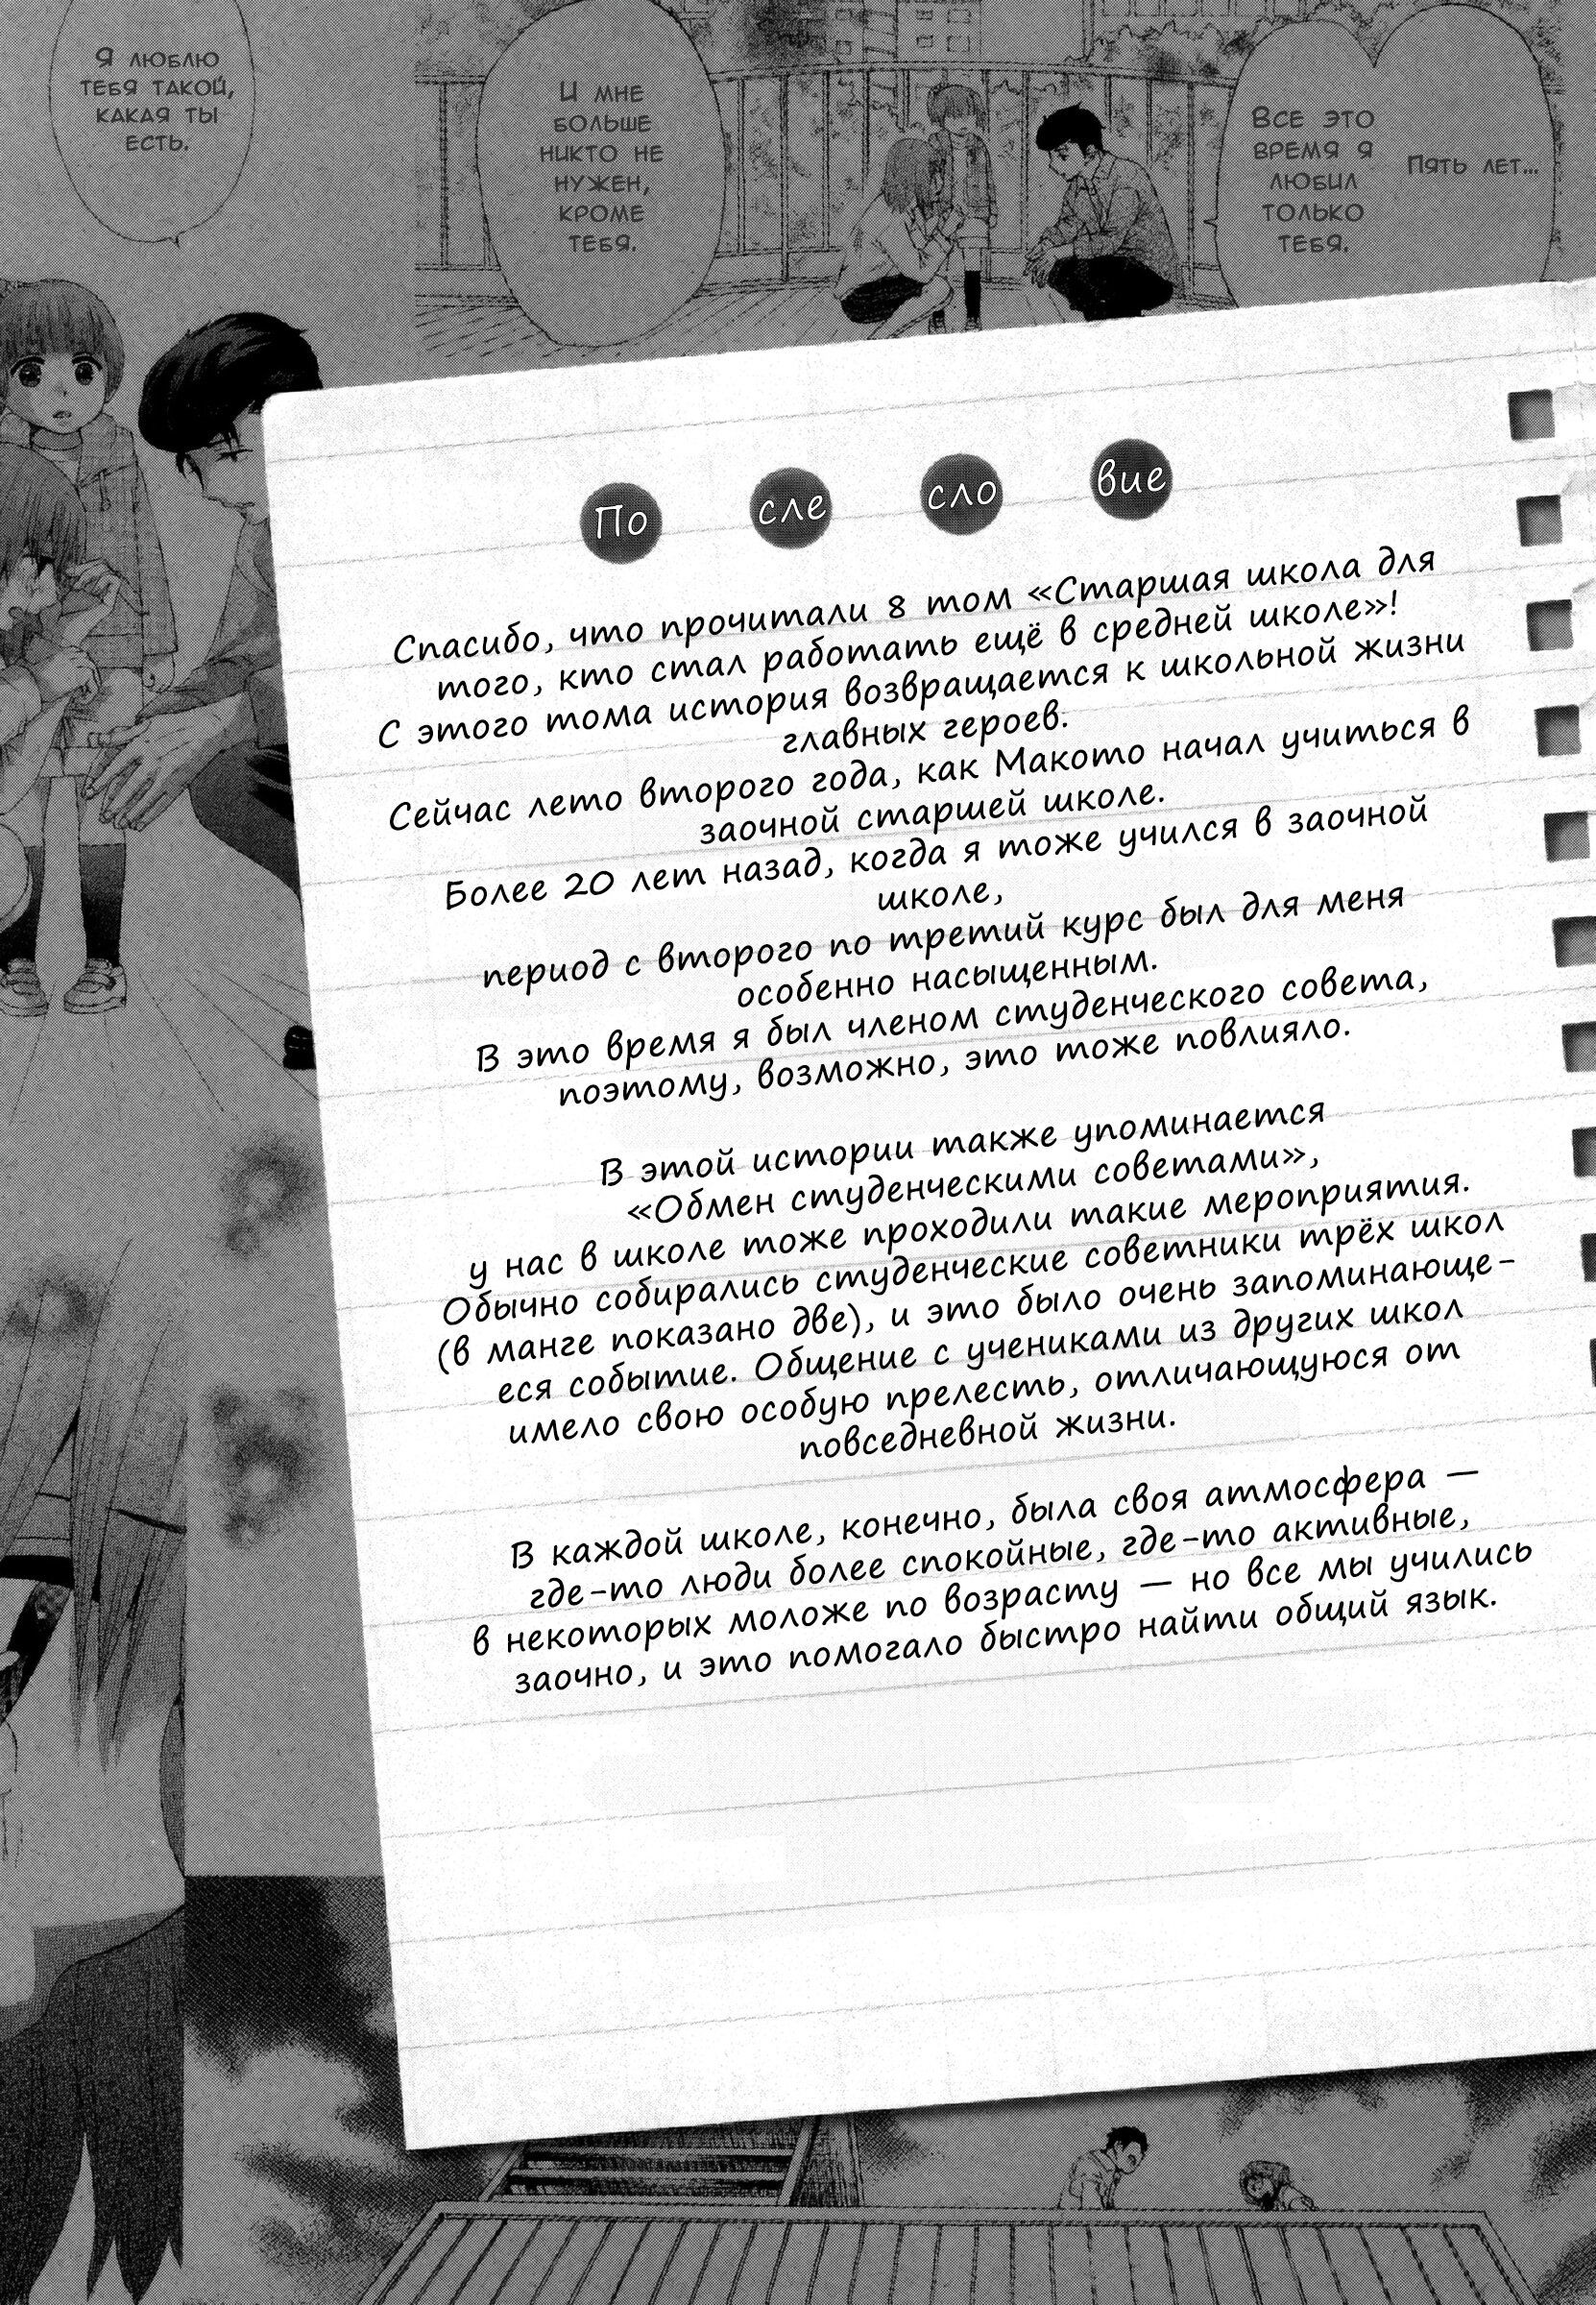 Пять лет...
Все это
время я
любил
только
тебя.
И мне
больше
никто не
нужен,
кроме
тебя.
Я люблю
тебя такой,
какая ты
есть.
По сле сло вие
Спасибо, что прочитали 8 том «Старшая школа для
того, кто стал работать ещё в средней школе»!
С этого тома история возвращается к школьной жизни
главных героев.
Сейчас лето второго года, как Макото начал учиться в
заочной старшей школе.
Более 20 лет назад, когда я тоже учился в заочной
школе,
период с второго по третий курс был для меня
особенно насыщенным.
В это время я был членом студенческого совета,
поэтому, возможно, это тоже повлияло.
В этой истории также упоминается
«Обмен студенческими советами»,
у нас в школе тоже проходили такие мероприятия.
Обычно собирались студенческие советники трёх школ
(в манге показано две), и это было очень запоминающе-
еся событие. Общение с учениками из других школ
имело свою особую прелесть, отличающуюся от
повседневной жизни.
В каждой школе, конечно, была своя атмосфера —
где-то люди более спокойные, где-то активные,
в некоторых моложе по возрасту — но все мы учились
заочно, и это помогало быстро найти общий язык.